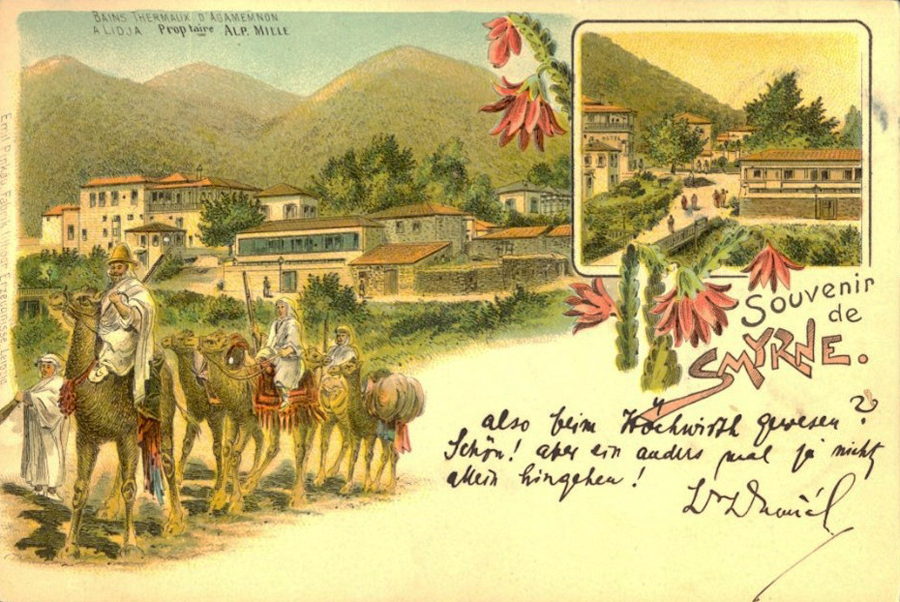 BAINS THERMAUX D'AGAMEMNON
A LIDJA Proptaire ALP. MILLE
HOTEL
Souvenir
de
SMYRNE.
also beim Höchwirth gewesen?
Schön! aber ein anders mal ja nicht
allein hingehen!
Emil Pinkau Fabrik Leipzig